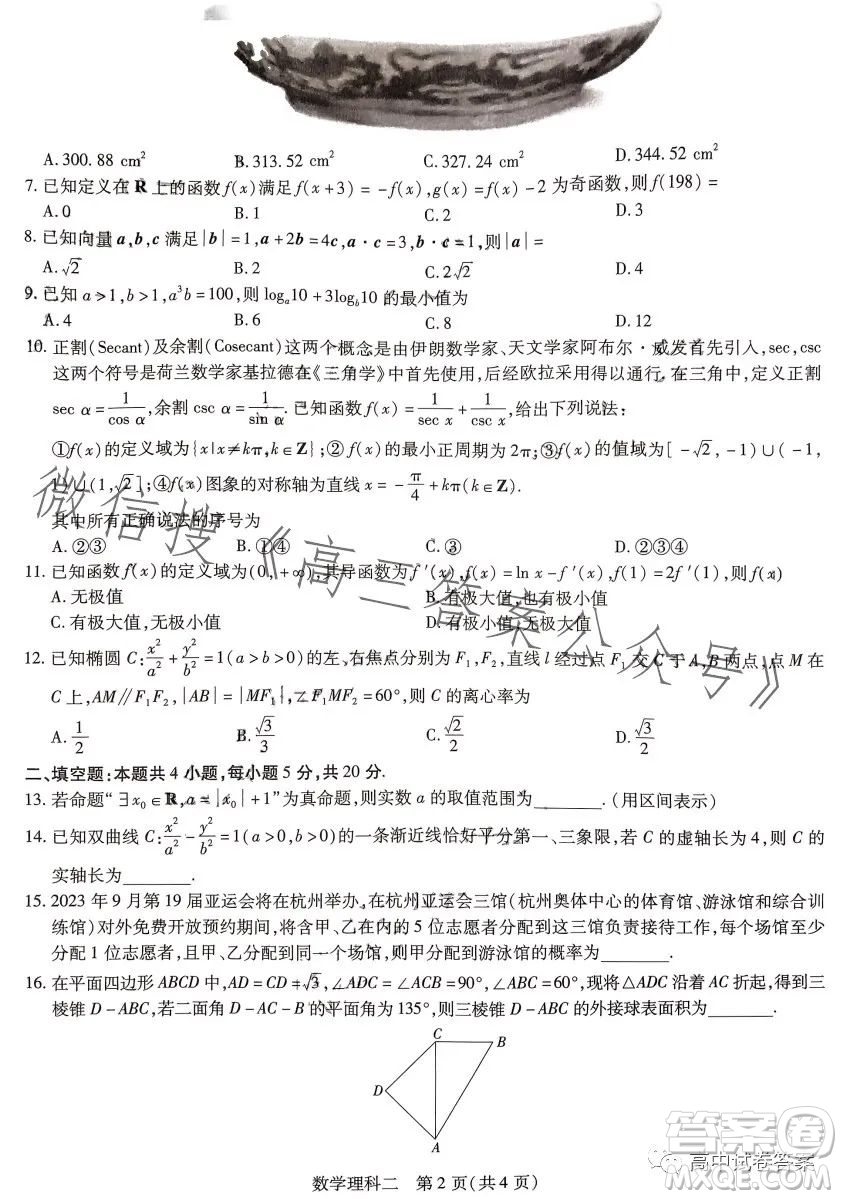 A. 300. 88 cm²
B. 313. 52 cm²
C. 327. 24 cm²
D. 344. 52 cm²
7. 已知定义在 R 上的函数 f(x)满足 f(x+3) = -f(x), g(x) = f(x) - 2 为奇函数,则 f(198) =
A. 0
B. 1
C. 2
D. 3
8. 已知向量 a,b,c 满足|b| = 1,a+2b = 4c,a·c = 3,b·c = 1,则|a| =
A. √2
B. 2
C. 2√2
D. 4
9. 已知 a>1,b>1,a³b = 100,则 logₐ10 + 3log_b10 的最小值为
A. 4
B. 6
C. 8
D. 12
10. 正割(Secant)及余割(Cosecant)这两个概念是由伊朗数学家、天文学家阿布尔·威发首先引入,sec,csc
这两个符号是荷兰数学家基拉德在《三角学》中首先使用,后经欧拉采用得以通行. 在三角中,定义正割
sec α = 1/cos α,余割 csc α = 1/sin α. 已知函数 f(x) = 1/sec x + 1/csc x,给出下列说法:
①f(x)的定义域为{x|x≠kπ,k∈Z};②f(x)的最小正周期为 2π;③f(x)的值域为[-√2,-1)∪(-1,
1)∪(1,√2];④f(x)图象的对称轴为直线 x = -π/4 + kπ(k∈Z).
其中所有正确说法的序号为
A. ②③
B. ①④
C. ③
D. ②③④
11. 已知函数 f(x)的定义域为(0,+∞),其导函数为 f′(x),f(x) = ln x - f′(x),f(1) = 2f′(1),则 f(x)
A. 无极值
B. 有极大值,也有极小值
C. 有极大值,无极小值
D. 有极小值,无极大值
12. 已知椭圆 C: x²/a² + y²/b² = 1(a>b>0)的左、右焦点分别为 F₁,F₂,直线 l 经过点 F₁ 交 C 于 A,B 两点,点 M 在
C 上,AM∥F₁F₂,|AB| = |MF₁|,∠F₁MF₂ = 60°,则 C 的离心率为
A. 1/2
B. √3/3
C. √2/2
D. √3/2
二、填空题:本题共 4 小题,每小题 5 分,共 20 分.
13. 若命题“∃x₀∈R,a = |x₀| + 1”为真命题,则实数 a 的取值范围为________. (用区间表示)
14. 已知双曲线 C: x²/a² - y²/b² = 1(a>0,b>0)的一条渐近线恰好平分第一、三象限,若 C 的虚轴长为 4,则 C 的
实轴长为________.
15. 2023 年 9 月第 19 届亚运会将在杭州举办. 在杭州亚运会三馆(杭州奥体中心的体育馆、游泳馆和综合训
练馆)对外免费开放预约期间,将含甲、乙在内的 5 位志愿者分配到这三馆负责接待工作,每个场馆至少
分配 1 位志愿者,且甲、乙分配到同一个场馆,则甲分配到游泳馆的概率为________.
16. 在平面四边形 ABCD 中,AD = CD = √3,∠ADC = ∠ACB = 90°,∠ABC = 60°,现将△ADC 沿着 AC 折起,得到三
棱锥 D-ABC,若二面角 D-AC-B 的平面角为 135°,则三棱锥 D-ABC 的外接球表面积为________.
C
B
D
A
数学理科二 第 2 页(共 4 页)
微信搜《高三答案公众号》
答案卷
高中试卷答案
MXQE.COM